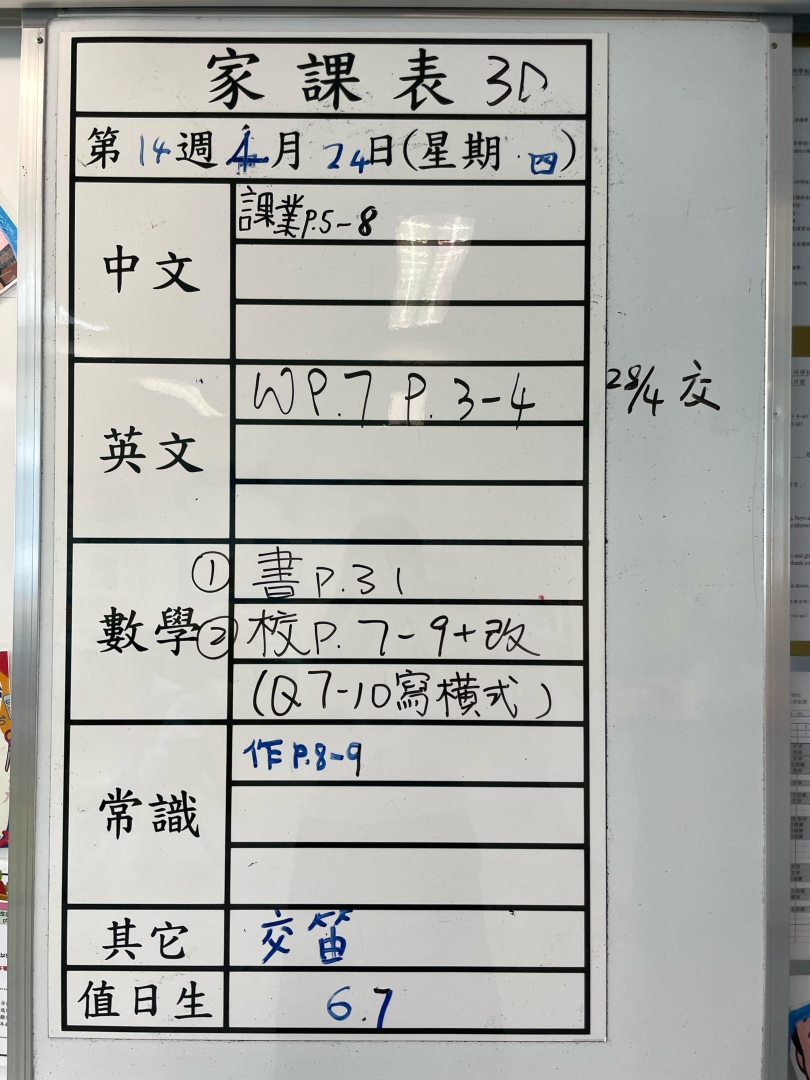 家課表 3D
第14週 4月24日(星期四)
中文
課業P.5-8
英文
WP.7 P.3-4 28/4 交
數學
① 書P.31
② 校P.7-9+改
(Q7-10寫橫式)
常識
作P.8-9
其它
交笛
值日生
6.7